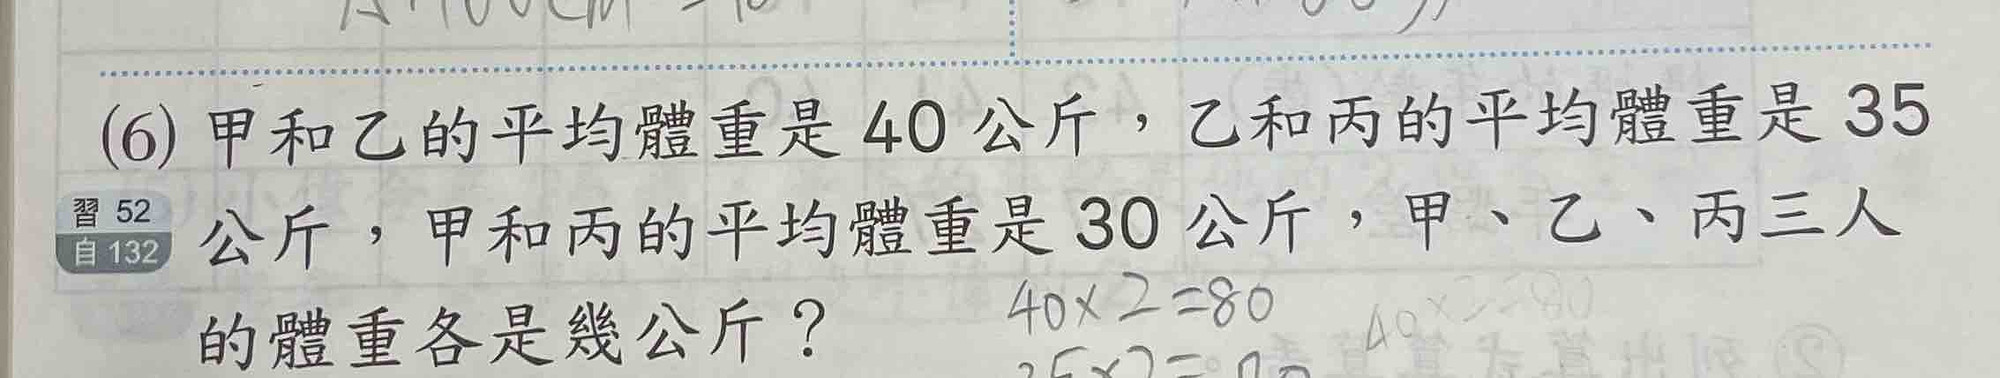 (6) 甲和乙的平均體重是 40 公斤，乙和丙的平均體重是 35
習 52
自 132
公斤，甲和丙的平均體重是 30 公斤，甲、乙、丙三人
的體重各是幾公斤？
40×2=80